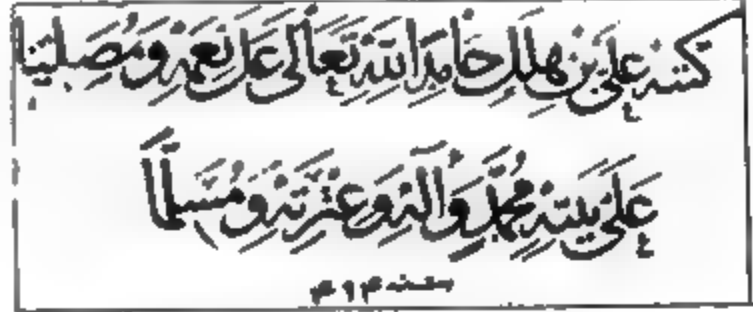 كتبه عَلِيّ بْن هِلَالٍ حَامِدًا لِلَّهِ تَعَالَى عَلَى نِعَمِهِ وَمُصَلِّيًا
عَلَى نَبِيِّهِ مُحَمَّدٍ وَآلِهِ وَعِتْرَتِهِ وَمُسَلِّمًا
سنه ۴۱۴